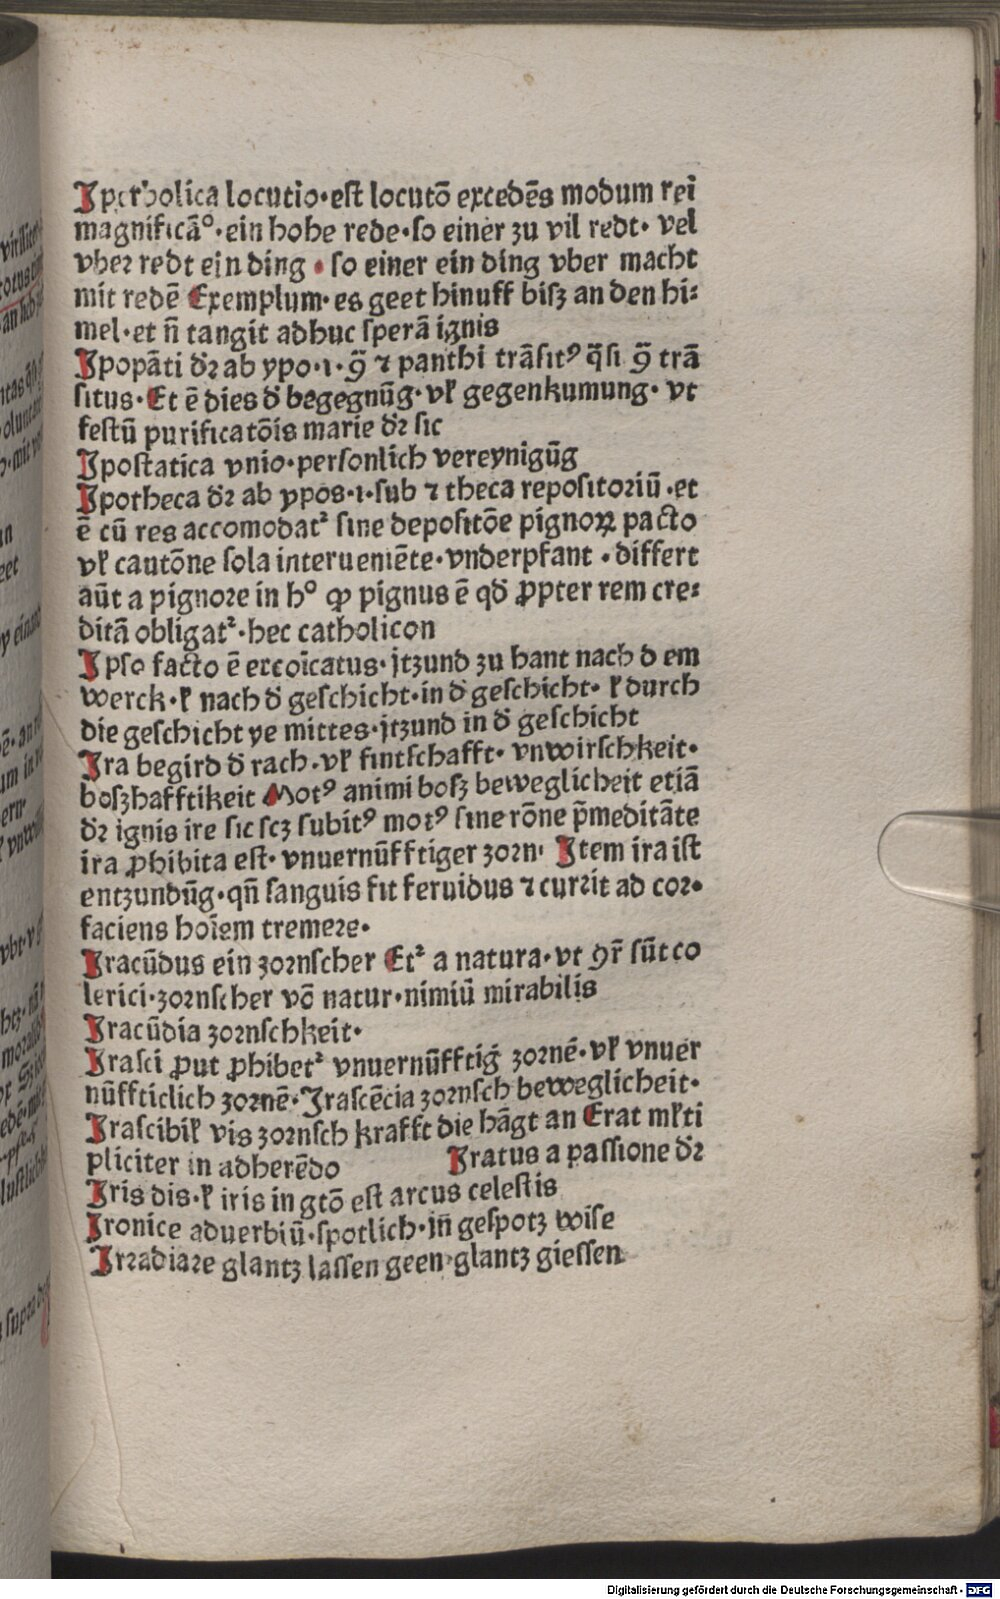 Iperbolica locutio·est locutō excedēs modum rei
magnificā°·ein hohe rede·so einer zu vil redt· vel
vber redt ein ding · so einer ein ding vber macht
mit redē Exemplum·es geet hinuff bisz an den hi⸗
mel·et n̄ tangit adhuc sperā ignis
Ipopāti dr̄ ab ypo·i·ꝯ̄ ⁊ panthi trāsitꝰ q̄si ꝯ̄ trā
situs·Et ē dies d̓ begegnūg·vl̓ gegenkumung· vt
festū purificatōis marie dr̄ sic
Ipostatica vnio·personlich vereynigūg
Ipotheca dr̄ ab ypos·i·sub ⁊ theca repositoriū·et
ē cū res accomodat᷑ sine depositōe pignoꝝ pacto
vl̓ cautōne sola interueniēte·vnderpfant · differt
aūt a pignore in h° ꝙ pignus ē qd̓ ꝓpter rem cre⸗
ditā obligat᷑·hec catholicon
Ipso facto ē excoīcatus·jtzund zu hant nach d em
werck·l̓ nach d̓ geschicht·in d̓ geschicht· l̓ durch
die geschicht ye mittes·jtzund in d̓ geschicht
Ira begird d̓ rach·vl̓ fintschafft· vnwirschkeit·
boszhafftikeit Motꝰ animi bosz beweglicheit etiā
dr̄ ignis ire sic scz subitꝰ motꝰ sine rōne p̄meditāte
ira ꝓhibita est· vnuernūfftiger zorn· Item ira ist
entzundūg·qn̄ sanguis fit feruidus ⁊ currit ad cor·
faciens hoīem tremere·
Iracūdus ein zornscher Et᷑ a natura·vt ꝯr̄ sūt co
lerici·zornscher vō natur·nimiū mirabilis
Iracūdia zornschkeit·
Irasci ꝓut ꝓhibet᷑ vnuernūfftig̓ zornē·vl̓ vnuer
nūffticlich zornē·Irascēcia zornsch beweglicheit·
Irascibil̓ vis zornsch krafft die hāgt an Erat ml̓ti
pliciter in adherēdo Iratus a passione dr̄
Iris dis·l̓ iris in gtō est arcus celestis
Ironice aduerbiū·spotlich·in̄ gespotz wise
Irradiare glantz lassen geen·glantz giessen
Digitalisierung gefördert durch die Deutsche Forschungsgemeinschaft - DFG